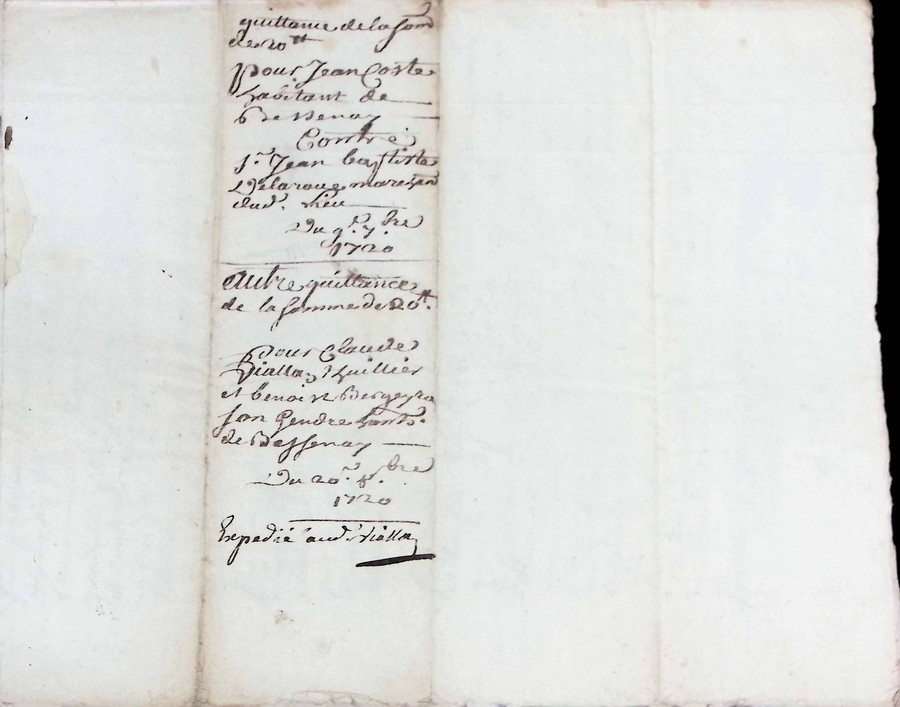 quittance de la som
de 20 tt
pour Jean Coste
habitant de
Bessenay
Contre
Sr. Jean baptiste
Delaroue marchan
dud. Lieu
Du 9e. 7. bre
1720
autre quittance
de la somme de 20 tt.
pour Claude
Viallon huillier
et benoist
son gendre hants.
de Bessenay
Du 20e. bre
1720
Expedié aud.